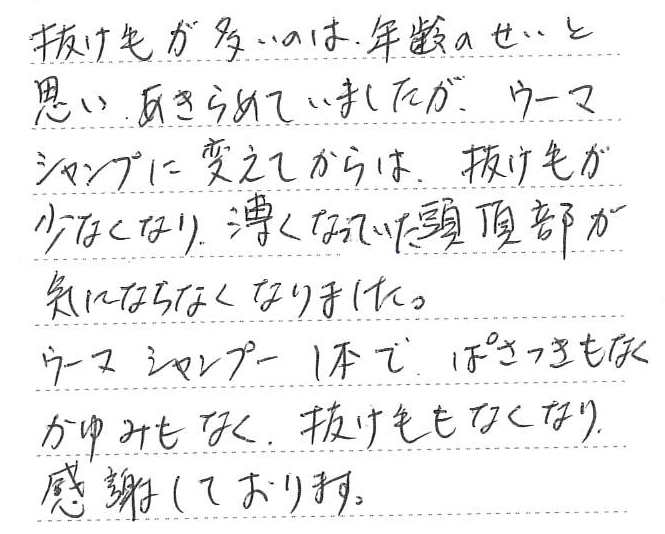 抜け毛が多いのは、年齢のせいと
思い、あきらめていましたが、ウーマ
シャンプに変えてからは、抜け毛が
少なくなり、薄くなっていた頭頂部が
気にならなくなりました。
ウーマシャンプー1本で、ぱさつきもなく
かゆみもなく、抜け毛もなくなり、
感謝しております。